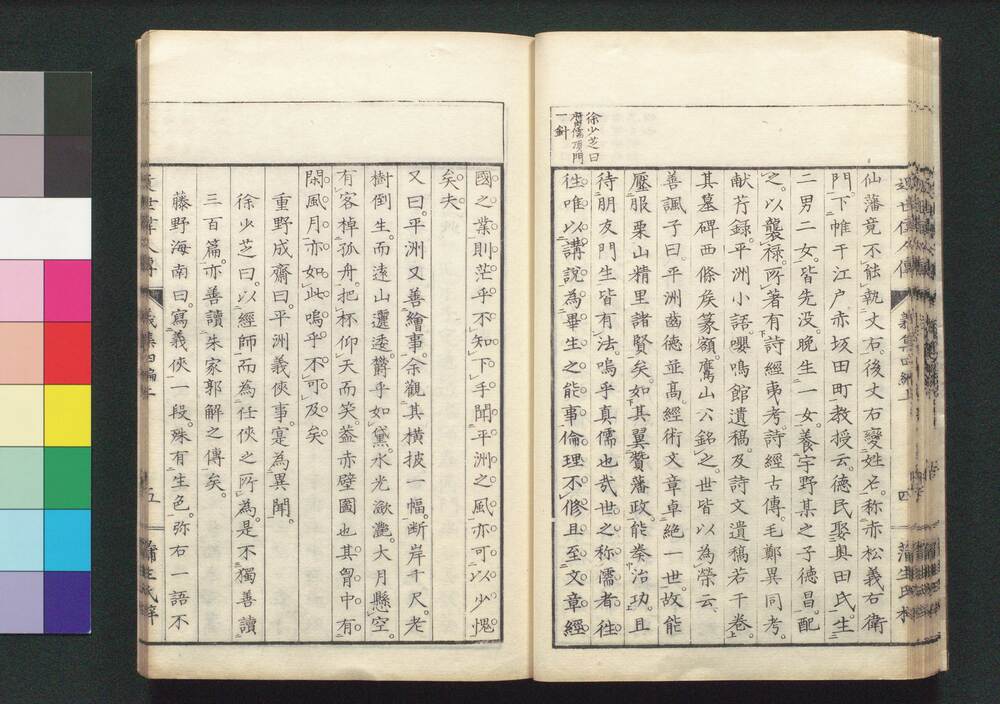 徐少芝曰
腐儒頂門
一針
仙藩竟不能執丈右後丈右變姓名稱赤松義右衛
門下帷于江戶赤坂田町教授云德民娶奧田氏生
二男二女皆先没晚生一女養宇野某之子德昌配
之以襲祿所著有詩經夷考詩經古傳毛鄭異同考
献芹録平洲小語嚶鳴館遺稿及詩文遺稿若干卷
其墓碑西條矦篆額鷹山公銘之世皆以為榮云
善諷子曰平洲齒德並高經術文章卓絶一世故能
壓服栗山精里諸賢矣如其翼贊藩政能奏治功且
待朋友門生皆有法嗚乎真儒也哉世之称儒者往
往唯以講說為畢生之能事倫理不修且至文章經
國之業則茫乎不知下手聞平洲之風亦可以少愧
矣夫
又曰平洲又善繪事余觀其橫披一幅断岸千尺老
樹倒生而遠山邐迤欝乎如黛水光瀲灔大月懸空
有客棹孤舟把杯仰天而笑葢赤壁圖也其胷中有
閑風月亦如此嗚乎不可及矣
重野成齋曰平洲義俠事寔為異聞
徐少芝曰以經師而為任俠之所為是不獨善讀
三百篇亦善讀朱家郭解之傳矣
藤野海南曰寫義俠一段殊有生色弥右一語不
五